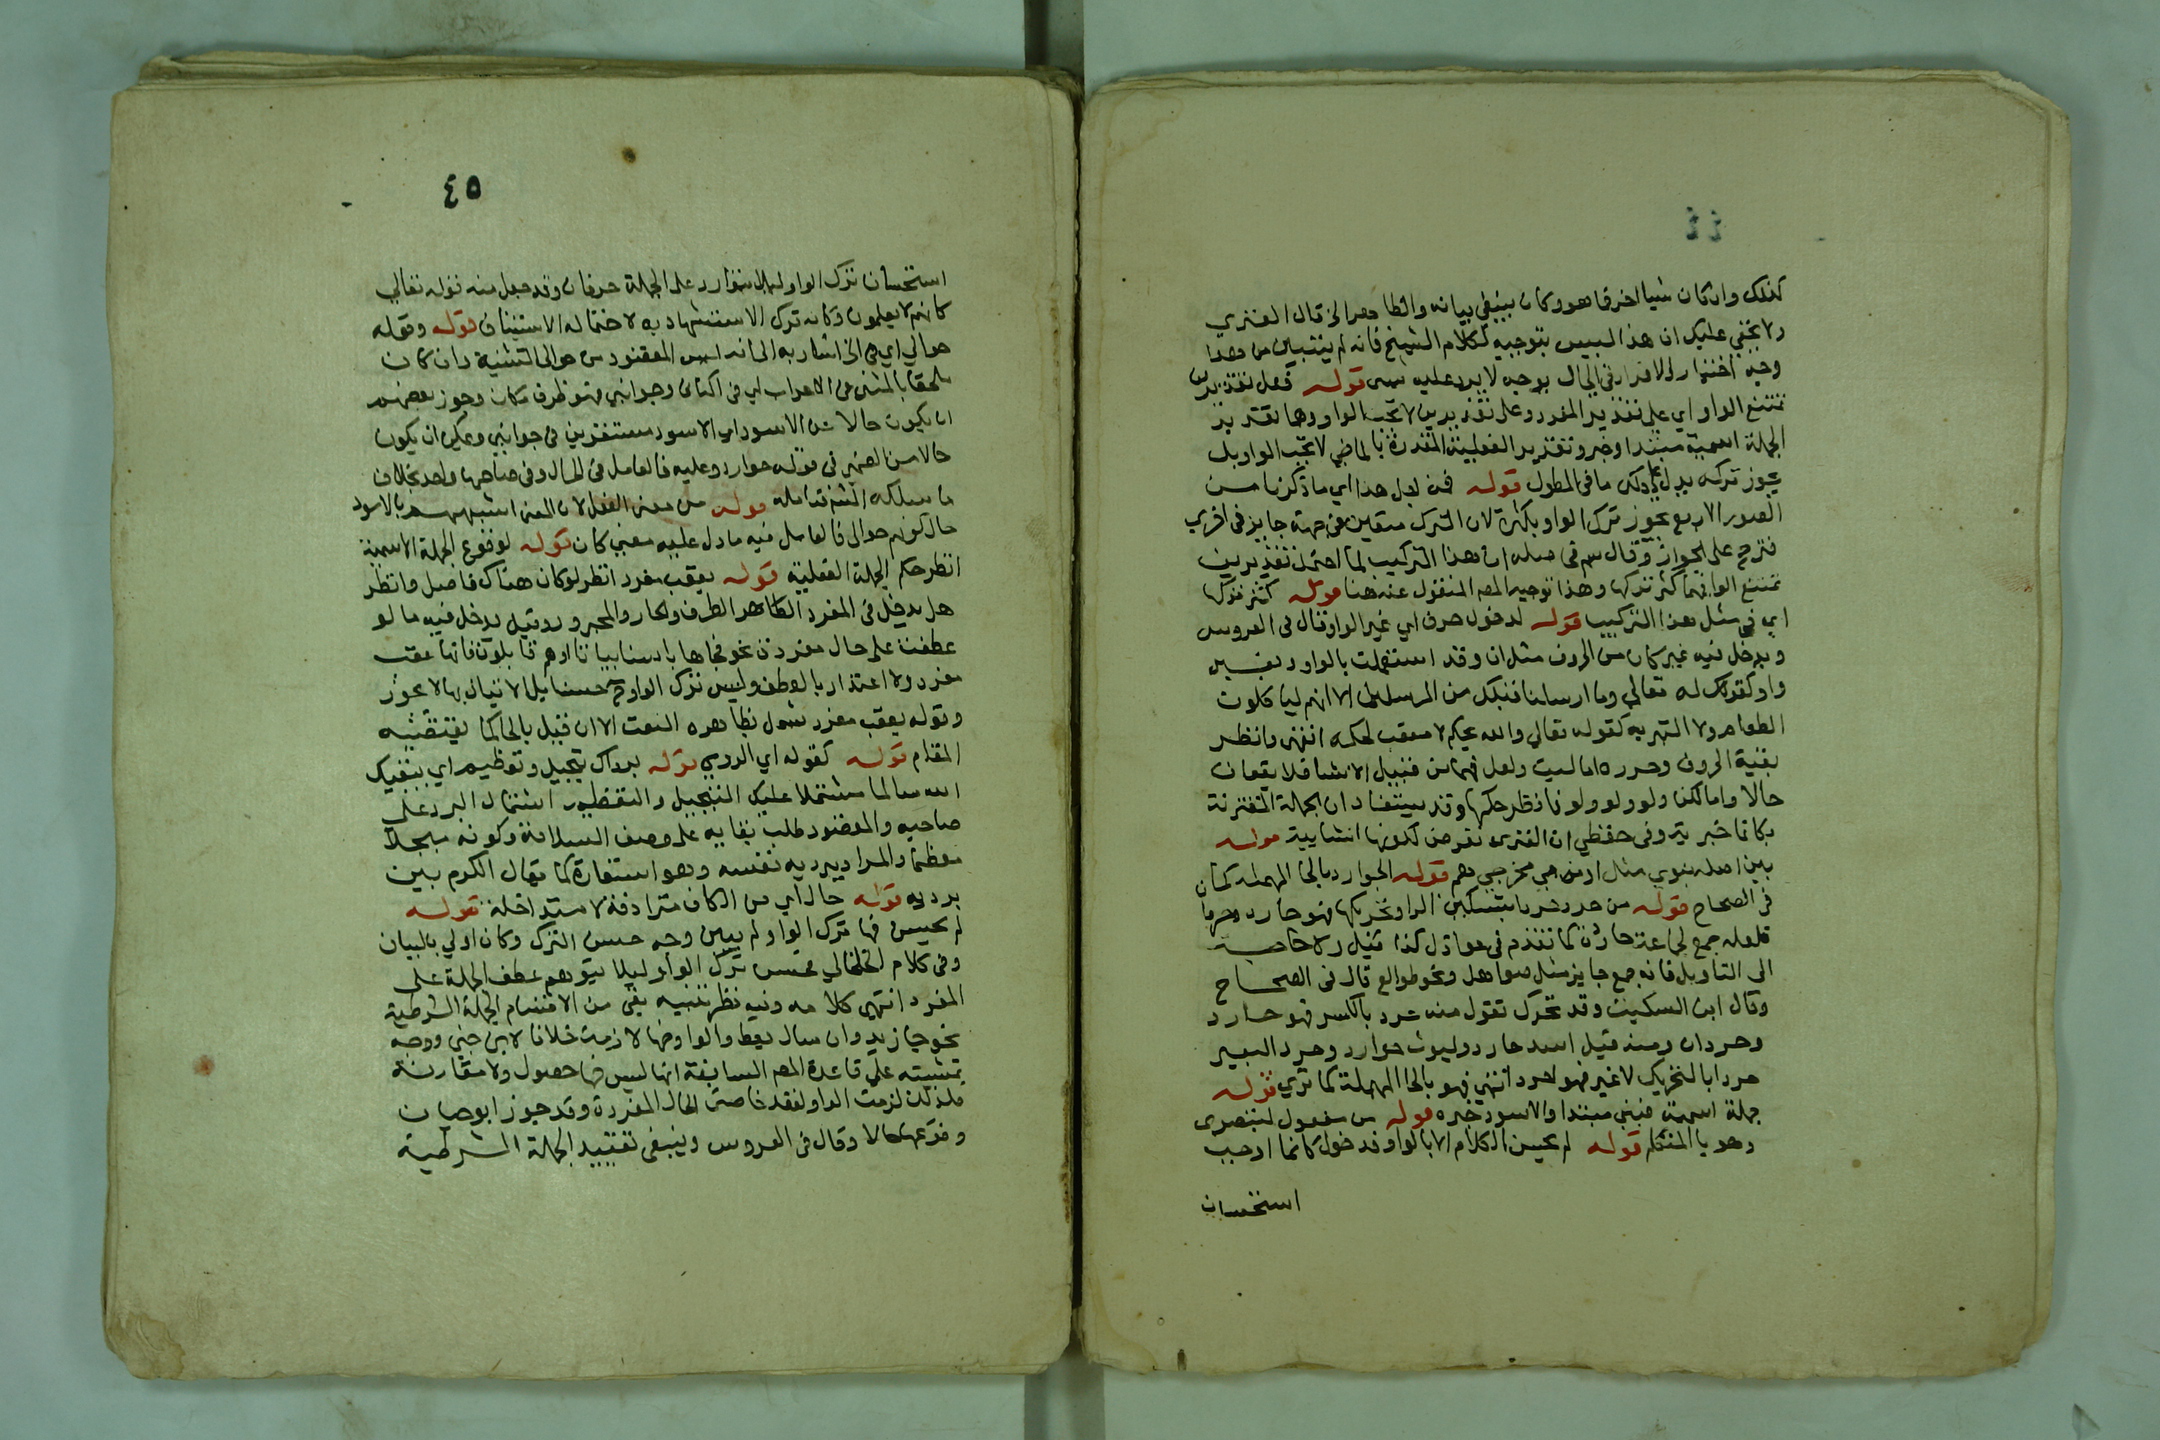 كذلك وان كان شيا اخر فما هو وكان ينبغي بيانه والظاهر الخ قال الفنري
ولا يخفي عليك ان هذا ليس بتوجيه لكلام الشيخ فانه لم يتبين من هذا
وجه اختيار الافراد في الحال بوجه لا يرد عليه شي قوله فعل تقديرين
تمتنع الواو اي علي تقدير المفرد وعلي تقديرين لا تجب الواو وهما تقدير
الجملة اسمية مبتدا وخبر وتقدير الفعلية المقدرة بالماضي لا تجب الواو بل
يجوز تركه يدل علي ذلك ما في المطول قوله فمن اجل هذا اي ما ذكرنا من
الصور الاربع يجوز ترك الواو بكثرة لان الترك متعين في جهة جايز في اخري
فترجح علي الجواز وقال سم في اصله ان هذا التركيب لما احتمل تقديرين
تمتنع الواو فيهما كثر تركها وهذا توجيه المص المنقول عنه هنا قوله كثر تركها
اي في مثل هذا التركيب قوله لدخول حرف اي غير الواو قال في العروس
ويدخل فيه غير كان من الحروف مثل ان وقد استعملت بالواو وبغير
واو كقوله تعالي وما ارسلنا قبلك من المرسلين الا انهم لياكلون
الطعام ولا التبرية كقوله تعالي والله يحكم لا معقب لحكمه انتهي وانظر
بقية الحروف وحرره اما ليت ولعل فهما من قبيل الانشا فلا يقعان
حالا واما لكن ولو ولولا فانظر حكمها وقد يستفاد ان الجملة المقترنة
بكانما خبرية وفي حفظي ان الفنري تعرض لكونها انشايية قوله
بين اصله بنوي مثل اومخرجي هم قوله الحوارد بالحا المهملة كما
في الصحاح قوله من حرد حردا بتسكين الرا وتحريكها فهو حارد وحردا
قلعله جمع لجماعة حاردة كما تقدم في عواذل كذا قيل ولا حاجة
الي التاويل فانه جمع جايز مثل صواهل ونحو طوالع قال في الصحاح
وقال ابن السكيت وقد تحرك تقول منه حرد بالكسر فهو حارد
وحردان ومنه قيل اسد حارد وليوث حوارد وحرد البعير
حردا بالتحريك لا غير فهو احرد انتهي فهو بالحا المهملة كما تري قوله
جملة اسمية فبني مبتدا والاسود خبره قوله من مفعول لتبصري
وهو يا المتكلم قوله لم يحسن الكلام الا بالواو فدخول كانما اوجب
استحسان
٤٥
استحسان ترك الواو ليلا يتوارد علي الجملة حرفان وقد جعل منه قوله تعالي
كانهم لا يعلمون وكانه ترك الاستشهاد به لاحتماله الاستيناف قوله وقوله
حوالي اي في الخ اشار به الي انه ليس المقصود من حوالي التثنية وان كان
ملحقا بالمثني في الاعراب اي في اكنافي وجوانبي فهو ظرف مكان وجوز بعضهم
ان يكون حالا من الاسود اي الاسود مستقرين في جوانبي ويمكن ان يكون
حالا من الضمير في قوله حوارد وعليه فالعامل في الحال وفي صاحبها واحد بخلاف
ما سلكه الش فتامله قوله من معني الفعل لان المعني اشبههم بالاسود
حال كونهم حوالي فالعامل فيه ما دل عليه معني كان قوله لوقوع الجملة الاسمية
انظر حكم الجملة الفعلية قوله بعقب مفرد انظر لو كان هناك فاصل وانظر
هل يدخل في المفرد الظاهر الظرف والجار والمجرور وقيل يدخل فيه ما لو
عطفت علي حال مفردة نحو فجاها باسنا بياتا او هم قايلون فانها عقب
مفرد ولا اعتذار بالعطف وليس ترك الواو ح حسنا بل الاتيان بها لا يجوز
وقوله بعقب مفرد يشمل بظاهره النعت الا ان قيل بالحال كما يقتضيه
المقام قوله كقوله اي الرومي قوله برداك تبجيل وتعظيم اي يبقيك
الله سالما مشتملا عليك التبجيل والتعظيم اشتمال البرد علي
صاحبه والمقصود طلب بقايه علي وصف السلامة وكونه مبجلا
معظما والمراد ببرديه نفسه وهو استعارة كما تقول الكرم بين
برديه قوله حال اي من الكاف مترادفة لا متداخلة قوله
لم يحسن فيها ترك الواو لم يبين وجه حسن الترك وكان اولي بالبيان
وفي كلام الخلخالي يحسن ترك الواو ليلا يتوهم عطف الجملة علي
المفرد انتهي كلامه وفيه نظر تنبيه بقي من الاقسام الجملة الشرطية
نحو جا زيد وان سال يعط والواو فيها لازمة خلافا لابن جني ووجه
تمشيته علي قاعدة المص السابقة انها ليس فيها حصول ولا مقارنة
فلذلك لزمت الواو لفقد خاصتي الحال المفردة وقد جوز ابو حيان
وقوعها حالا وقال في العروس وينبغي تقييد الجملة الشرطية